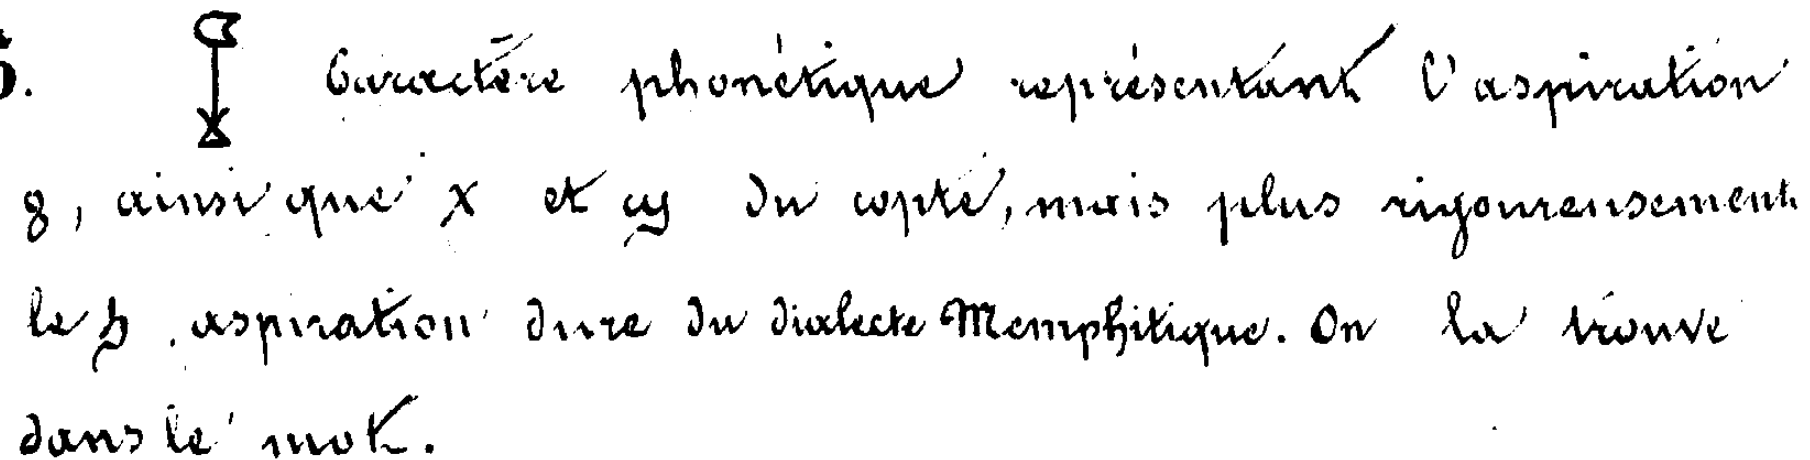 5. 𓆼 Caractère phonétique représentant l'aspiration
ϩ, ainsi que χ et ϣ du copte, mais plus rigoureusement
le ϧ, aspiration dure du dialecte Memphitique. On la trouve
dans le mot.